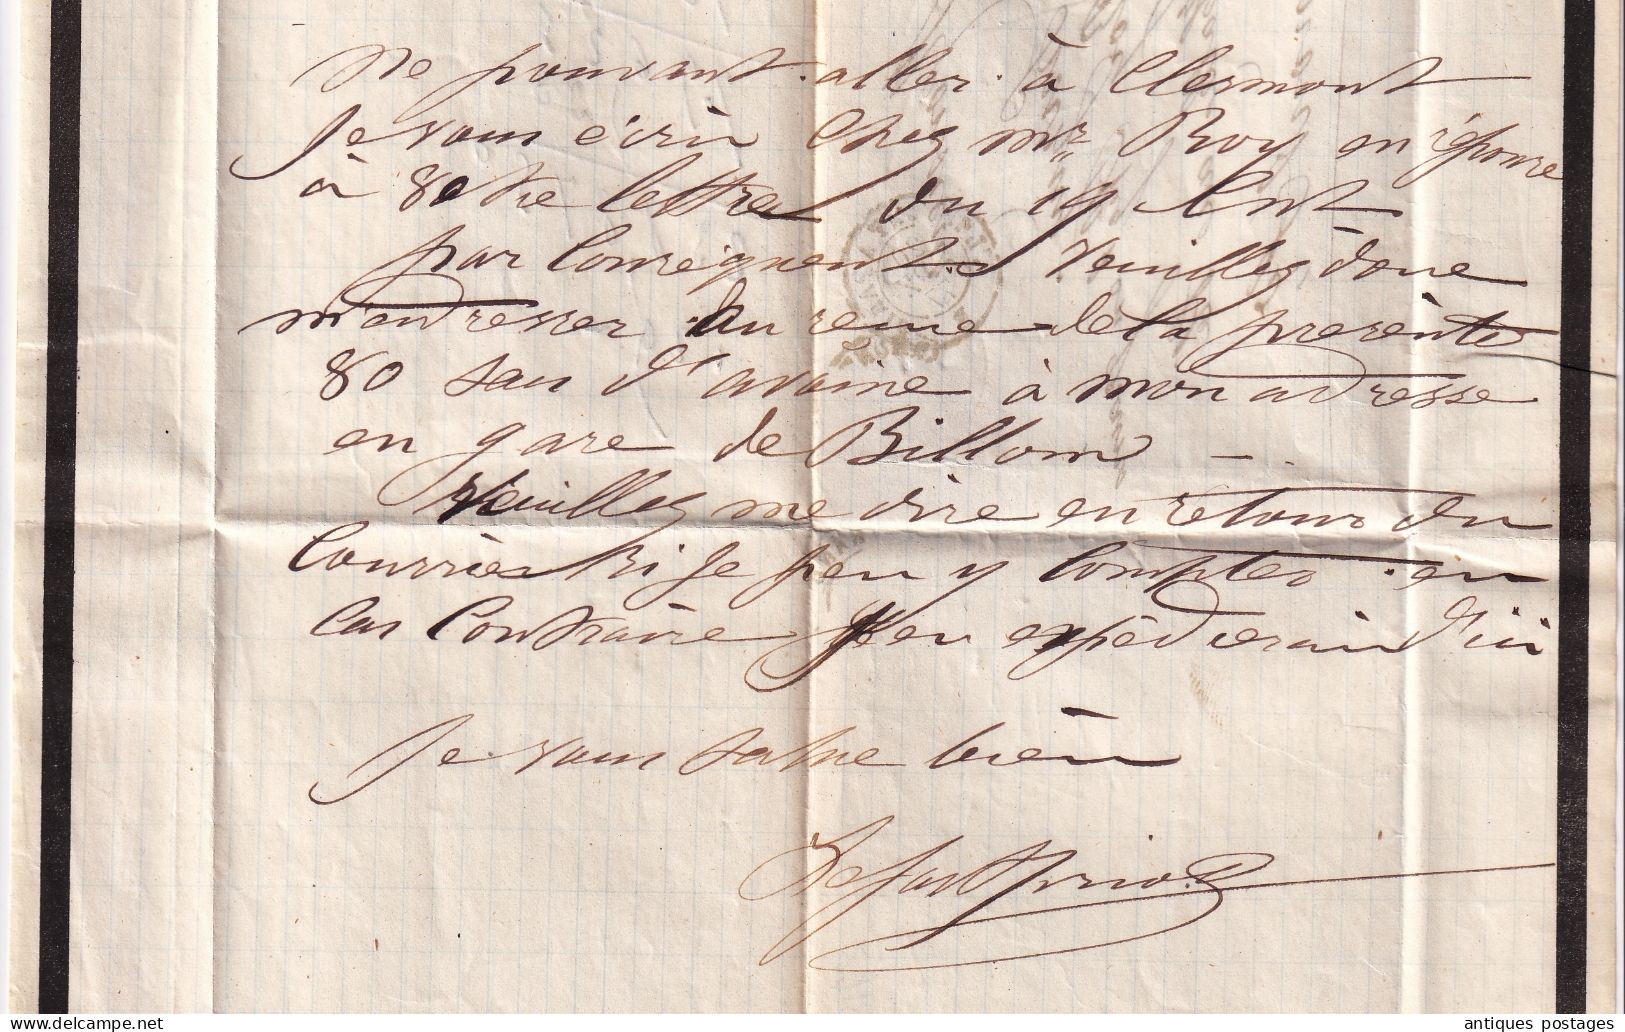 Ne pouvant aller à Clermont
Je vous écrin Chez Mr Roy en réponse
à votre lettre du 19 Cnt
par Conséquent Veuillez donc
m'adresser au reçue de la présente
80 sau d'avoine à mon adresse
en gare de Billom —
Veuillez me dire en retour du
Courrier Si Je peu y Compter en
Cas Contraire J'en expédierain d'ici
Je vous salue bien
antiques postages